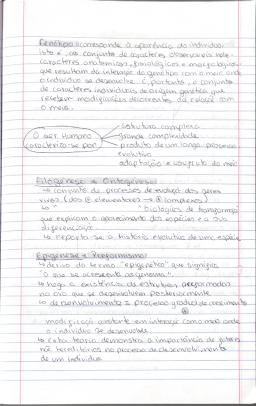 Fenótipo: corresponde à aparência do indivíduo,
isto é, ao conjunto de caracteres observáveis
caracteres anatómicos, fisiológicos e morfológicos
que resultam da interação do genótipo com o meio onde
o indivíduo se desenvolve. É, portanto, o conjunto
de caracteres individuais de origem genética que
recebem modificações decorrentes da relação com
o meio.
estrutura complexa
O ser Humano grande complexidade
caracteriza-se por: produto de um longo processo
evolutivo
adaptação e usufruto do meio
Filogénese e Ontogénese
conjunto de processos de evolução dos seres
vivos (dos + elementares → + complexos)
" " biológicos de transformação
que explicam o aparecimento das espécies e a sua
diferenciação
reporta-se à história evolutiva de uma espécie
Epigénese e Preformismo
deriva do termo "epigenético" que significa
"o que se acrescenta ao genoma".
nega a existência de estruturas preformadas
no ovo que se desenvolvem posteriormente
desenvolvimento = processo gradual de crescimento
+
modificação constante em interação com o meio onde
o indivíduo se desenvolve
esta teoria demonstra a importância de fatores
não hereditários no processo de desenvolvimento
de um indivíduo